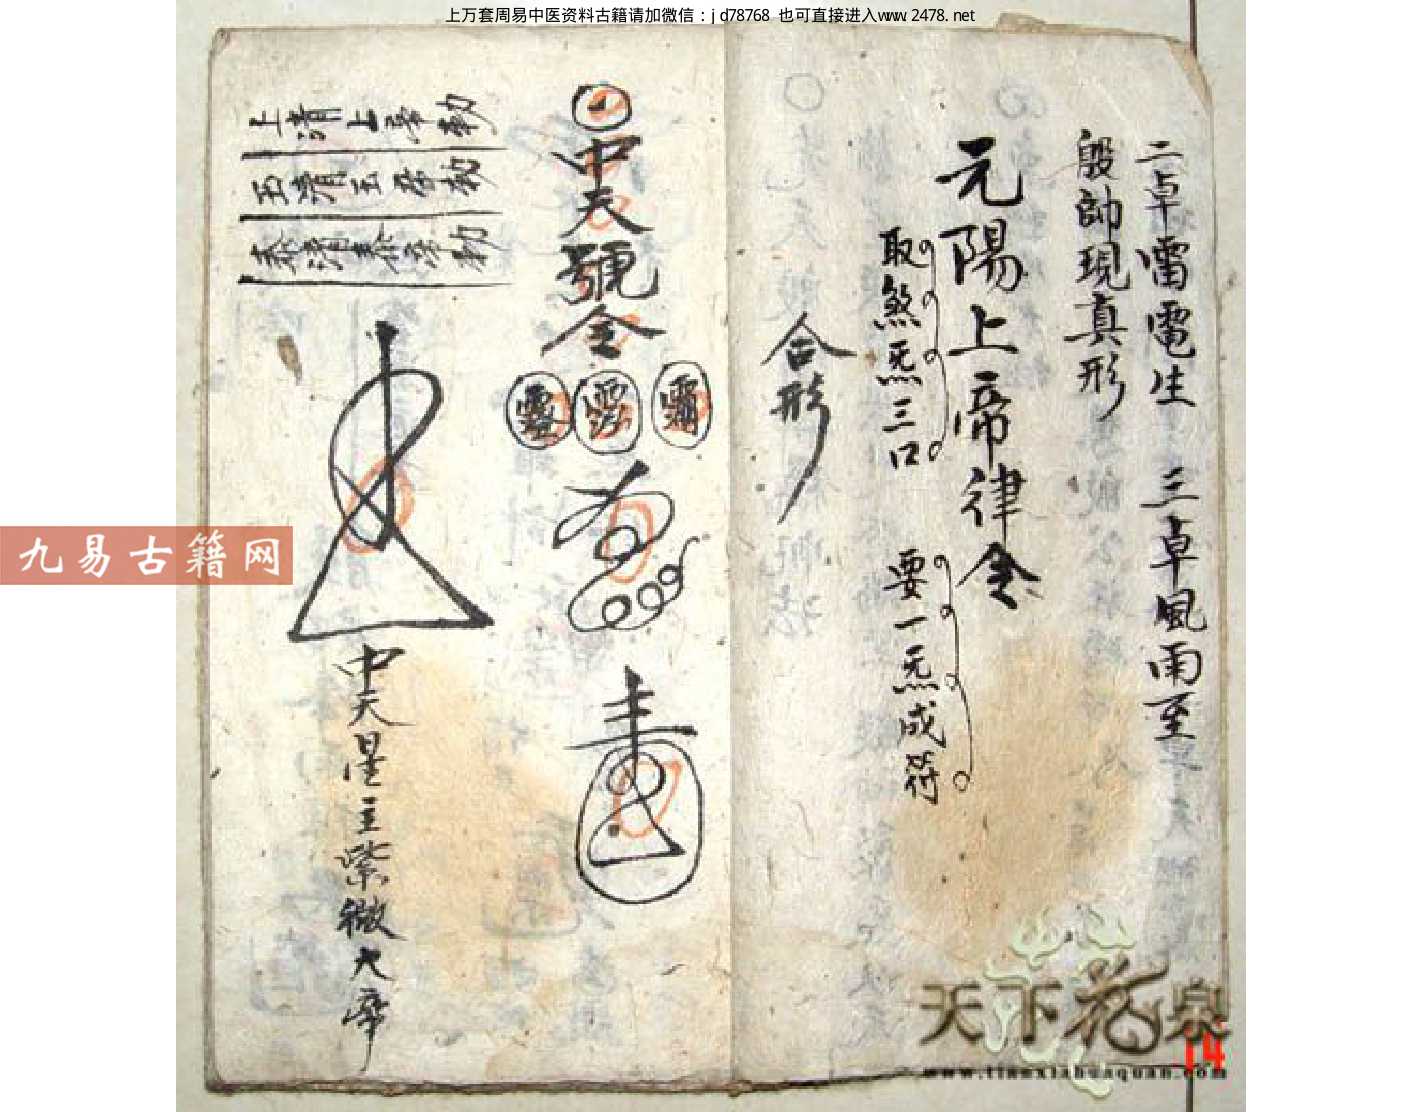 上万套周易中医资料古籍请加微信：jd78768 也可直接进入www.2478.net
二卓雷電生 三卓風雨至
殷帥現真形
元陽上帝律令
取煞炁三口 要一炁成符
合形
中天號令
上清上帝勅
玉清玉帝勅
泰清泰帝勅
中天星主紫微大帝
九易古籍网
天下花泉
14
www.tianxiahuaquan.com